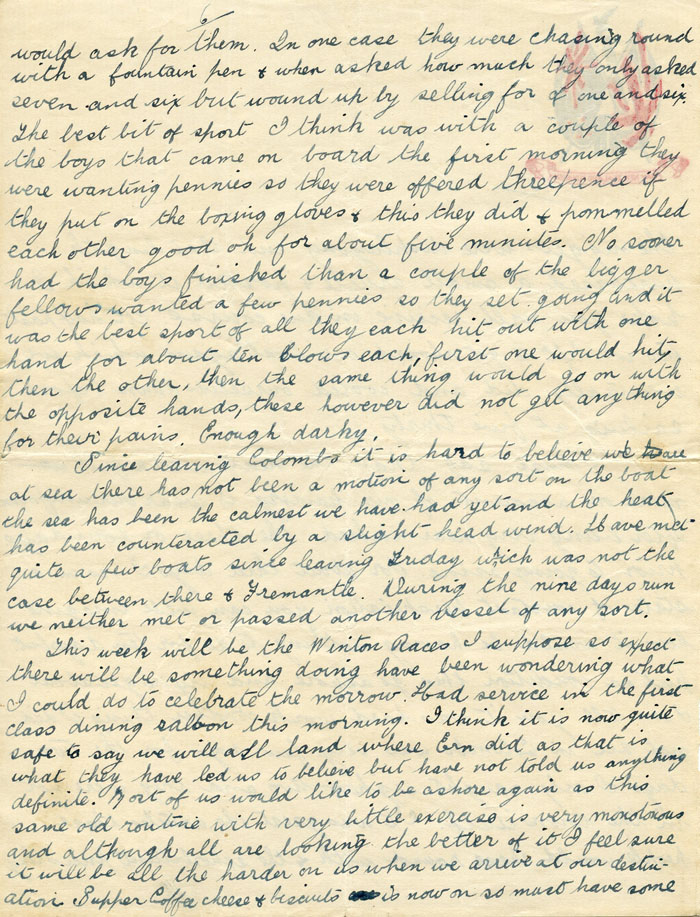 6
would ask for them. In one case they were chasing round
with a fountain pen & when asked how much they only asked
seven and six but wound up by selling for £ one and six.
The best bit of sport I think was with a couple of
the boys that came on board the first morning they
were wanting pennies so they were offered threepence if
they put on the boxing gloves & this they did & pommelled
each other good oh for about five minutes. No sooner
had the boys finished than a couple of the bigger
fellows wanted a few pennies so they set going and it
was the best sport of all they each hit out with one
hand for about ten blows each, first one would hit,
then the other, then the same thing would go on with
the opposite hands, these however did not get anything
for their pains. Enough darky.
Since leaving Colombo it is hard to believe we are
at sea there has not been a motion of any sort on the boat
the sea has been the calmest we have had yet and the heat
has been counteracted by a slight head wind. Have met
quite a few boats since leaving Friday which was not the
case between there & Fremantle. During the nine days run
we neither met or passed another vessel of any sort.
This week will be the Winton Races I suppose so expect
there will be something doing have been wondering what
I could do to celebrate the morrow. Had service in the first
class dining saloon this morning. I think it is now quite
safe to say we will all land where Ern did as that is
what they have led us to believe but have not told us anything
definite. Most of us would like to be ashore again as this
same old routine with very little exercise is very monotonous
and although all are looking the better of it I feel sure
it will be all the harder on us when we arrive at our destin-
ation. Supper Coffee cheese & biscuits is now on so must have some